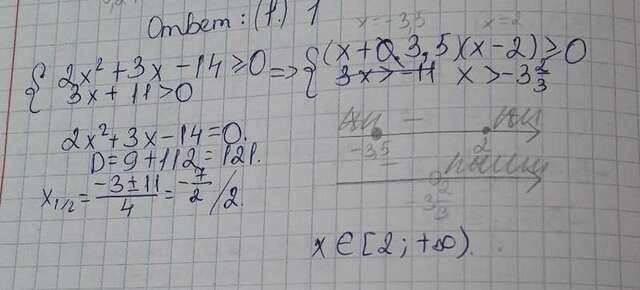 Ответ: (1.) 1
x=-3,5 x=2
{ 2x²+3x-14≥0 => { (x+3,5)(x-2)≥0
3x+11>0 3x>-11 x>-3 2/3
2x²+3x-14=0.
D=9+112=121.
x₁/₂= (-3±11)/4 = -7/2 /2.
− 
-3,5 2
-3 2/3
x∈[2;+∞).